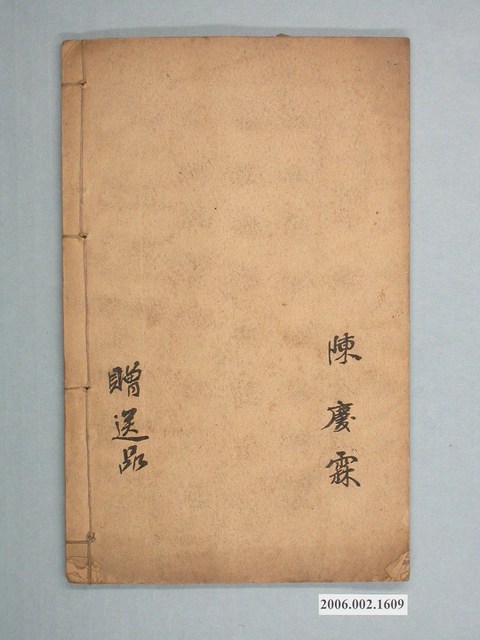 陳慶霖
贈送品
2006.002.1609